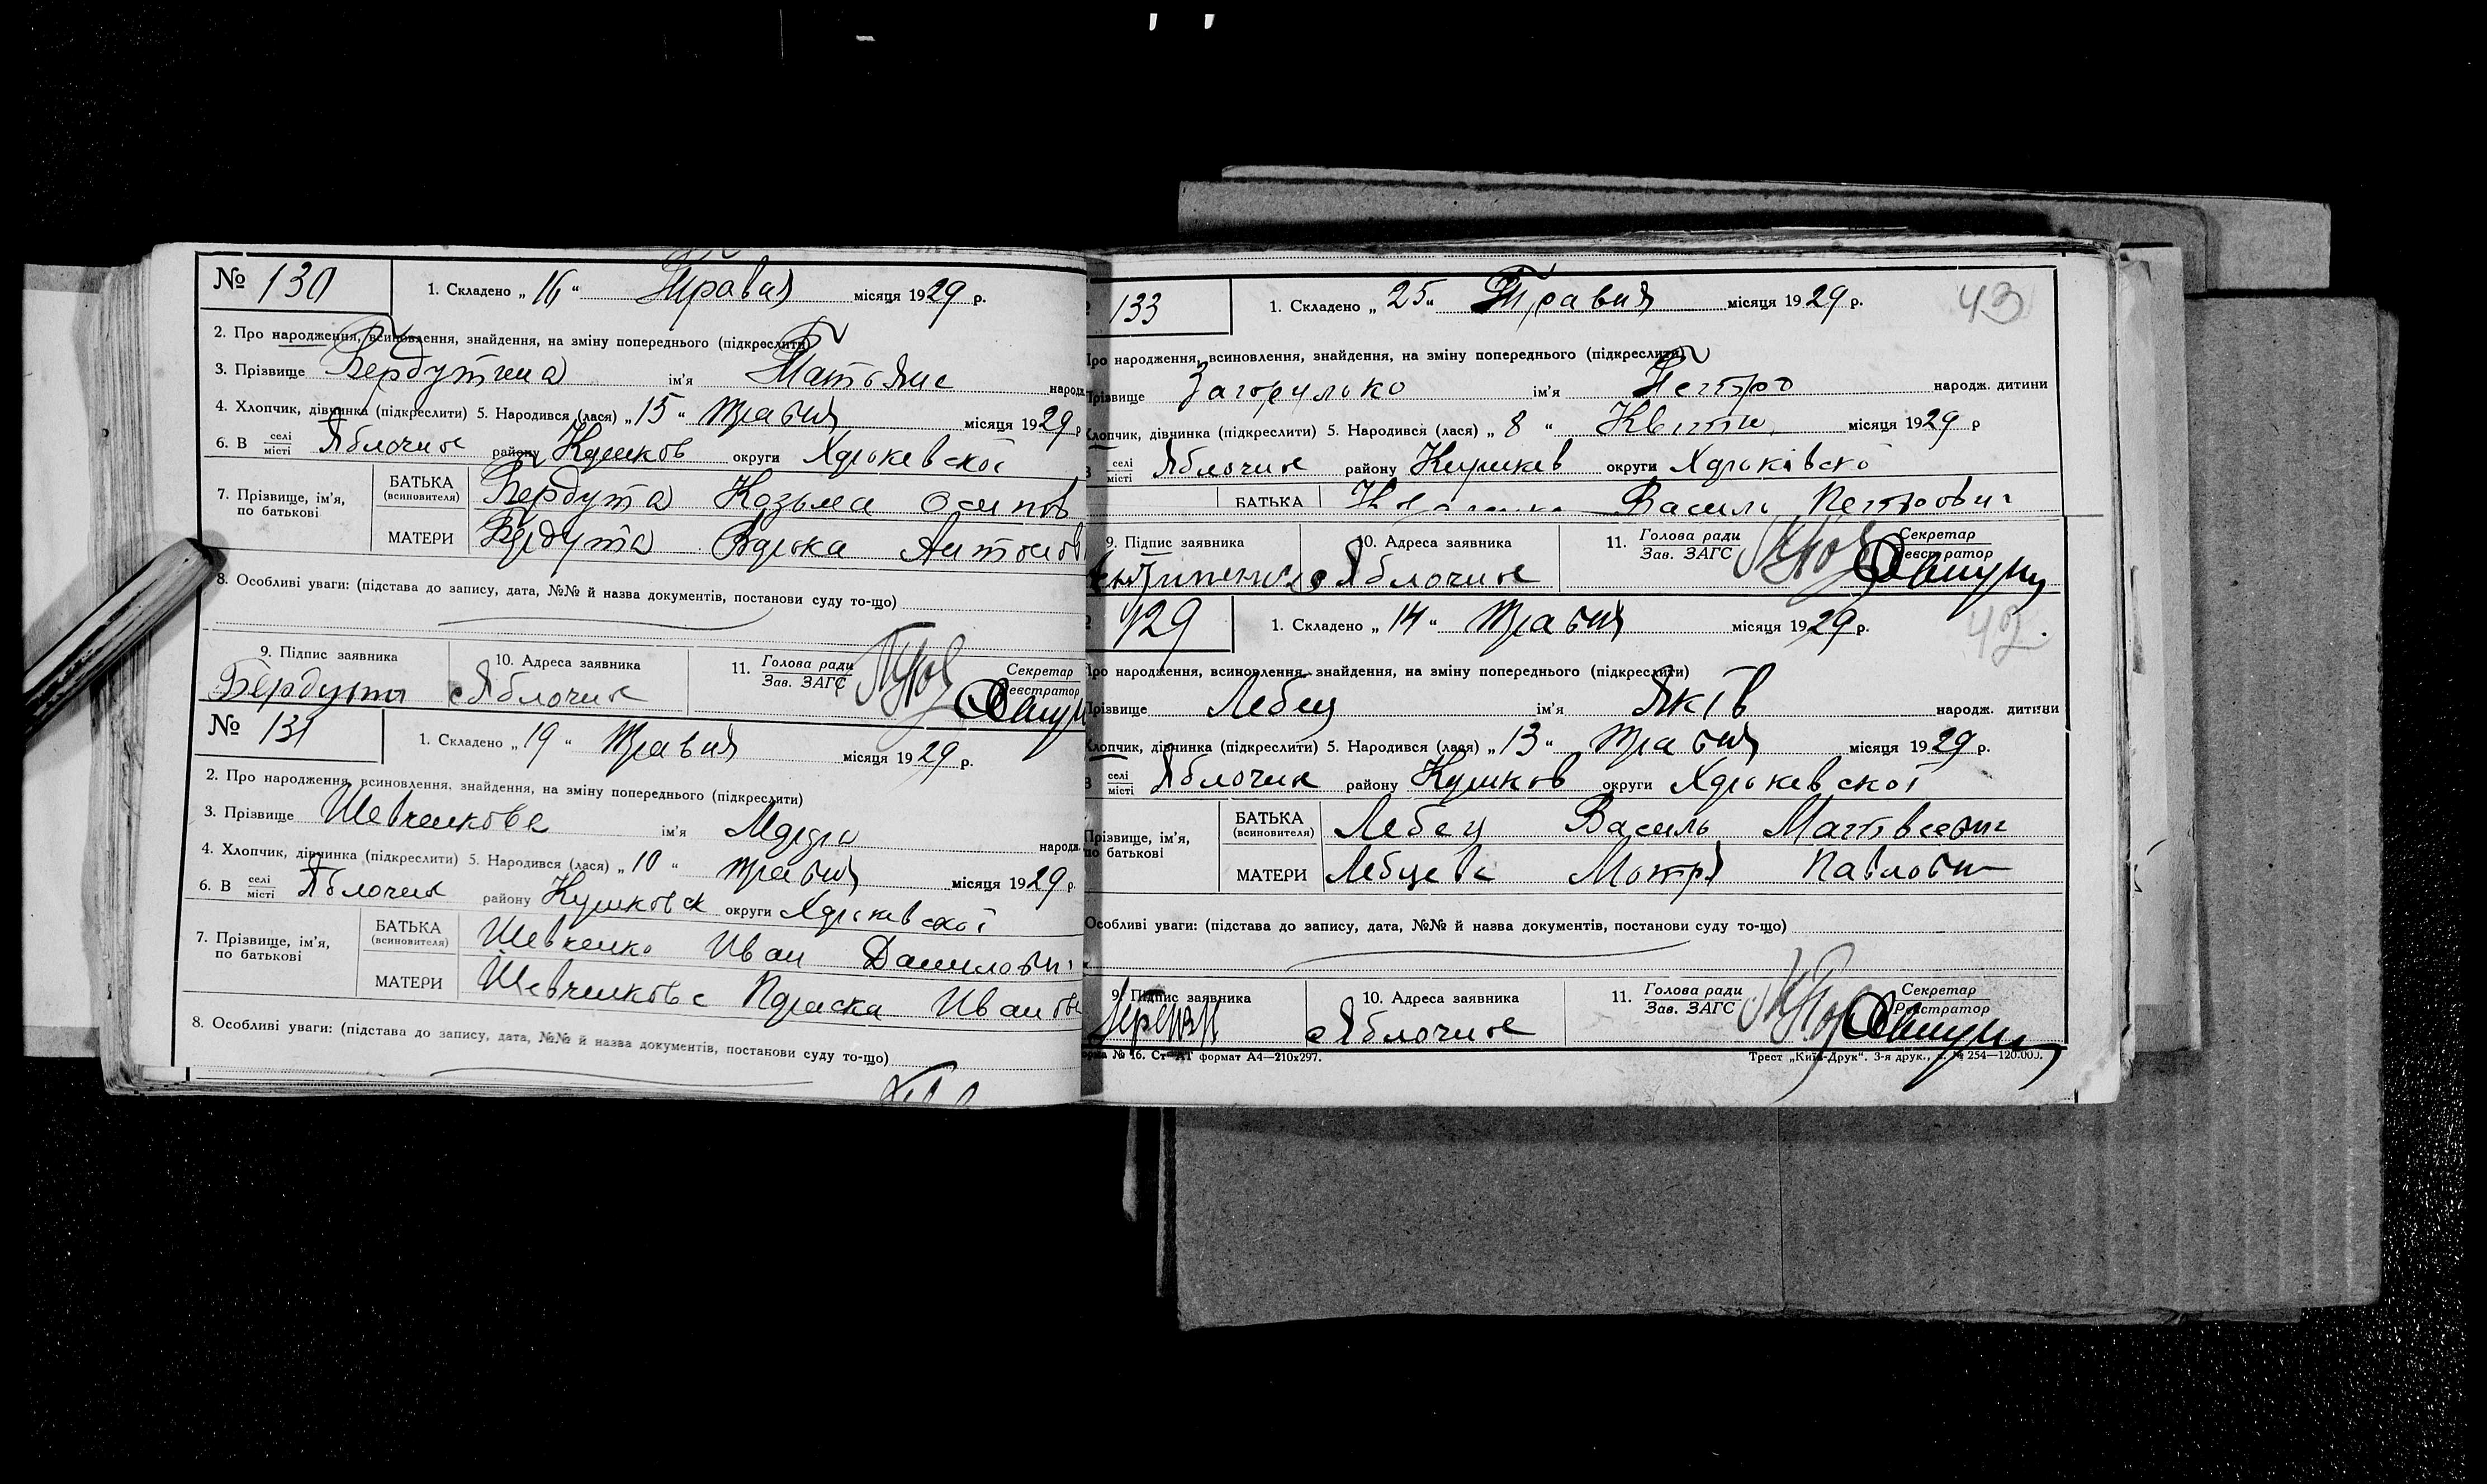 № 130
1. Складено „ 16 “ Травня місяця 1929 р.
2. Про народження, всиновлення, знайдення, на зміну попереднього (підкреслити)
3. Прізвище Бердутина ім'я Татьяна народж
4. Хлопчик, дівчинка (підкреслити) 5. Народився (лася) „ 15 “ травня місяця 1929 р
6. В селі місті Яблочне району округи Харьковської
7. Прізвище, ім'я, по батькові
БАТЬКА (всиновителя) Бердута Козьма Осипов
МАТЕРИ Бердута Варька Антонов
8. Особливі уваги: (підстава до запису, дата, №№ й назва документів, постанови суду то-що)
9. Підпис заявника 10. Адреса заявника 11. Голова ради Зав. ЗАГС Секретар Реєстратор
Бердута с Яблочне
№ 131
1. Складено „ 19 “ Травня місяця 1929 р.
2. Про народження, всиновлення, знайдення, на зміну попереднього (підкреслити)
3. Прізвище Шевченкова ім'я Марія народж.
4. Хлопчик, дівчинка (підкреслити) 5. Народився (лася) „ 10 “ травня місяця 1929 р.
6. В селі місті Яблочне району округи Харьковської
7. Прізвище, ім'я, по батькові
БАТЬКА (всиновителя) Шевченко Иван Данилович
МАТЕРИ Шевченкова Параска Иванов
8. Особливі уваги: (підстава до запису, дата, №№ й назва документів, постанови суду то-що)
133
1. Складено „ 25 “ Травня місяця 1929 р.
43
Про народження, всиновлення, знайдення, на зміну попереднього (підкреслити)
Прізвище Загорулько ім'я Петро народж. дитини
Хлопчик, дівчинка (підкреслити) 5. Народився (лася) „ 8 “ Квітн. місяця 1929 р
В селі місті Яблочне району округи Харьківсько
БАТЬКА Василь Петрович
9. Підпис заявника 10. Адреса заявника 11. Голова ради Зав. ЗАГС Секретар Реєстратор
с Яблочне
129
1. Складено „ 14 “ травня місяця 1929 р.
42.
Про народження, всиновлення, знайдення, на зміну попереднього (підкреслити)
Прізвище Лебец ім'я Яків народж. дитини
Хлопчик, дівчинка (підкреслити) 5. Народився (лася) „ 13 “ травня місяця 1929 р.
В селі місті Яблочне району округи Харьковської
Прізвище, ім'я, по батькові
БАТЬКА (всиновителя) Лебец Василь Матвеевич
МАТЕРИ Лебцева Мотря Павловн
Особливі уваги: (підстава до запису, дата, №№ й назва документів, постанови суду то-що)
9. Підпис заявника 10. Адреса заявника 11. Голова ради Зав. ЗАГС Секретар Реєстратор
с Яблочне
Форма № 16. Ст-АТ формат А4—210x297.
Трест „Київ-Друк“. 3-я друк., з. № 254—120.000.